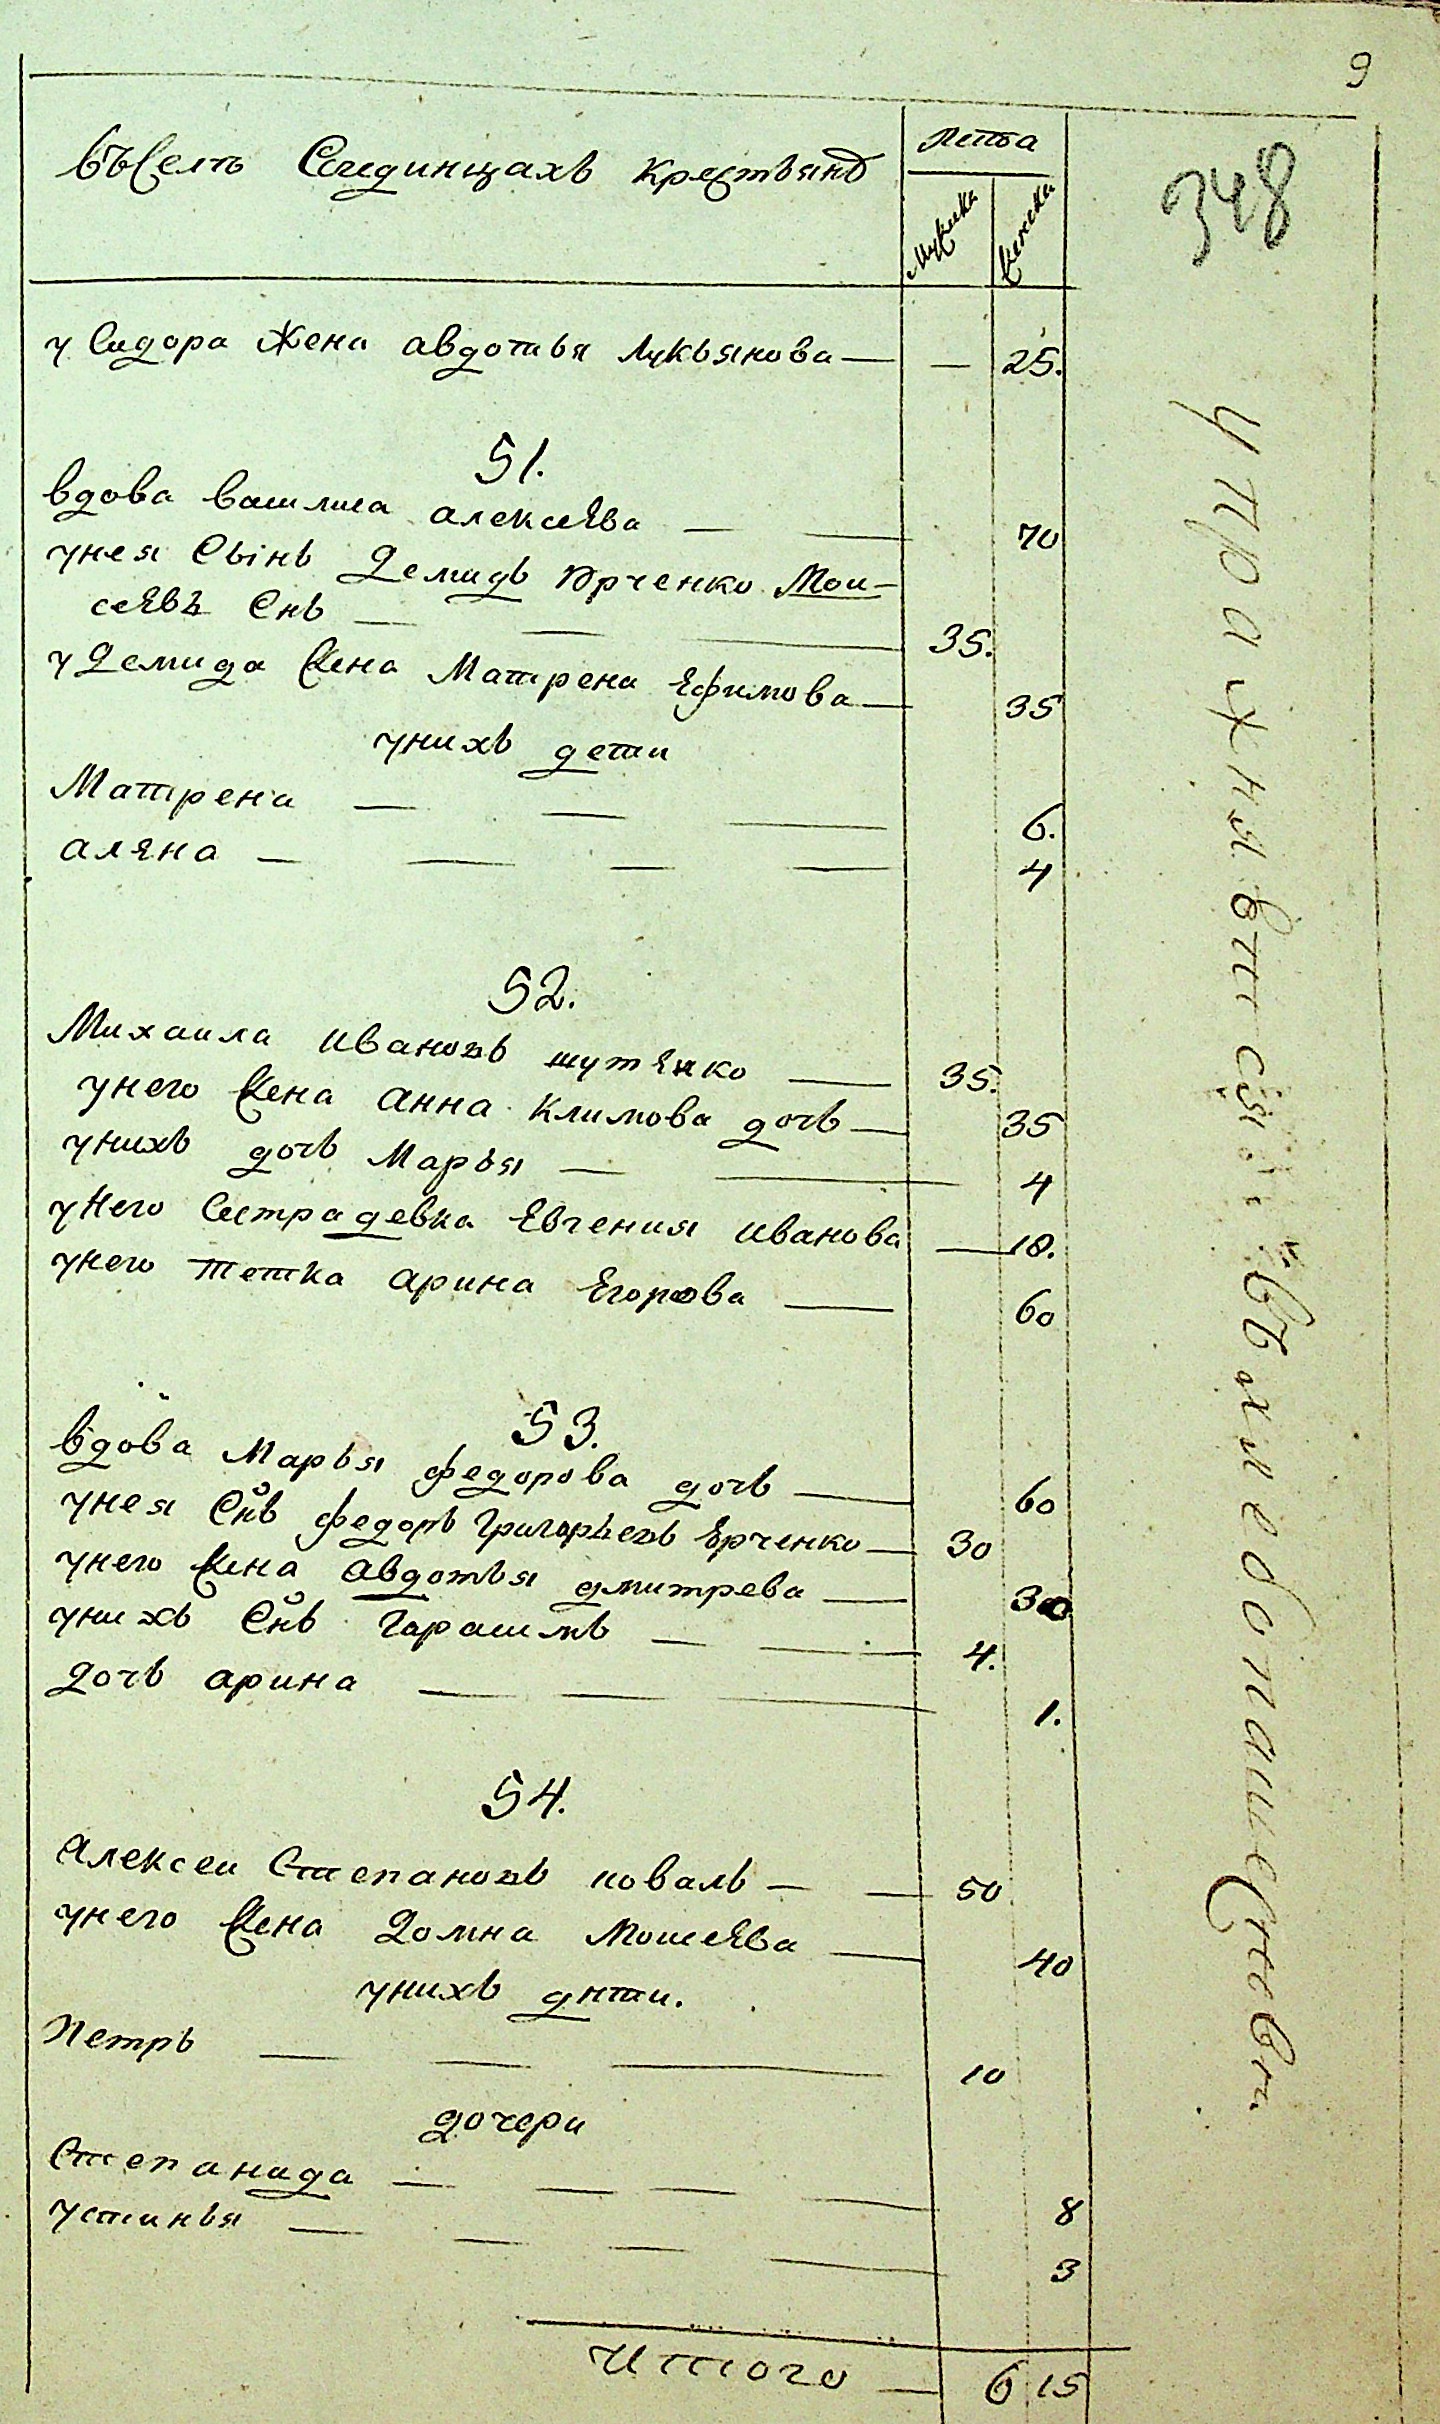 9
348
въ селъ Саединцахъ крестьянъ
лета
мужска
женска
у Сидора жена авдотья Лукьянова — — 25.
51.
вдова василиса алексѣева — — 70
унея Сынъ Демидъ Юрченко Мои-
сеѣвъ Снъ — — — 35.
у Демида жена Матрена Ефимова — 35
унихъ дети
Матрена — — — 6.
алена — — — — 4
52.
Михаила ивановъ шутенко — 35.
унего жена анна климова дочь — 35
унихъ дочь Марья — — 4
унего Сестра девка Евгения иванова — 18.
унего тетка арина Егорова — 60
53.
вдова Марья федорова дочь — 60
унея Снъ федоръ Григорьевъ Юрченко — 30
унего жена авдотья дмитрева — 30
унихъ Снъ Гарасимъ — — 4.
дочь арина — — — 1.
54.
алексеи Степановъ коваль — — 50
унего жена Домна Моисеѣва — 40
унихъ дѣти.
Петръ — — — 10
дочери
Степанида — — — — 8
устинья — — — — 3
Итого — 6 15
упражнявтися въ хлебопашествѣ.